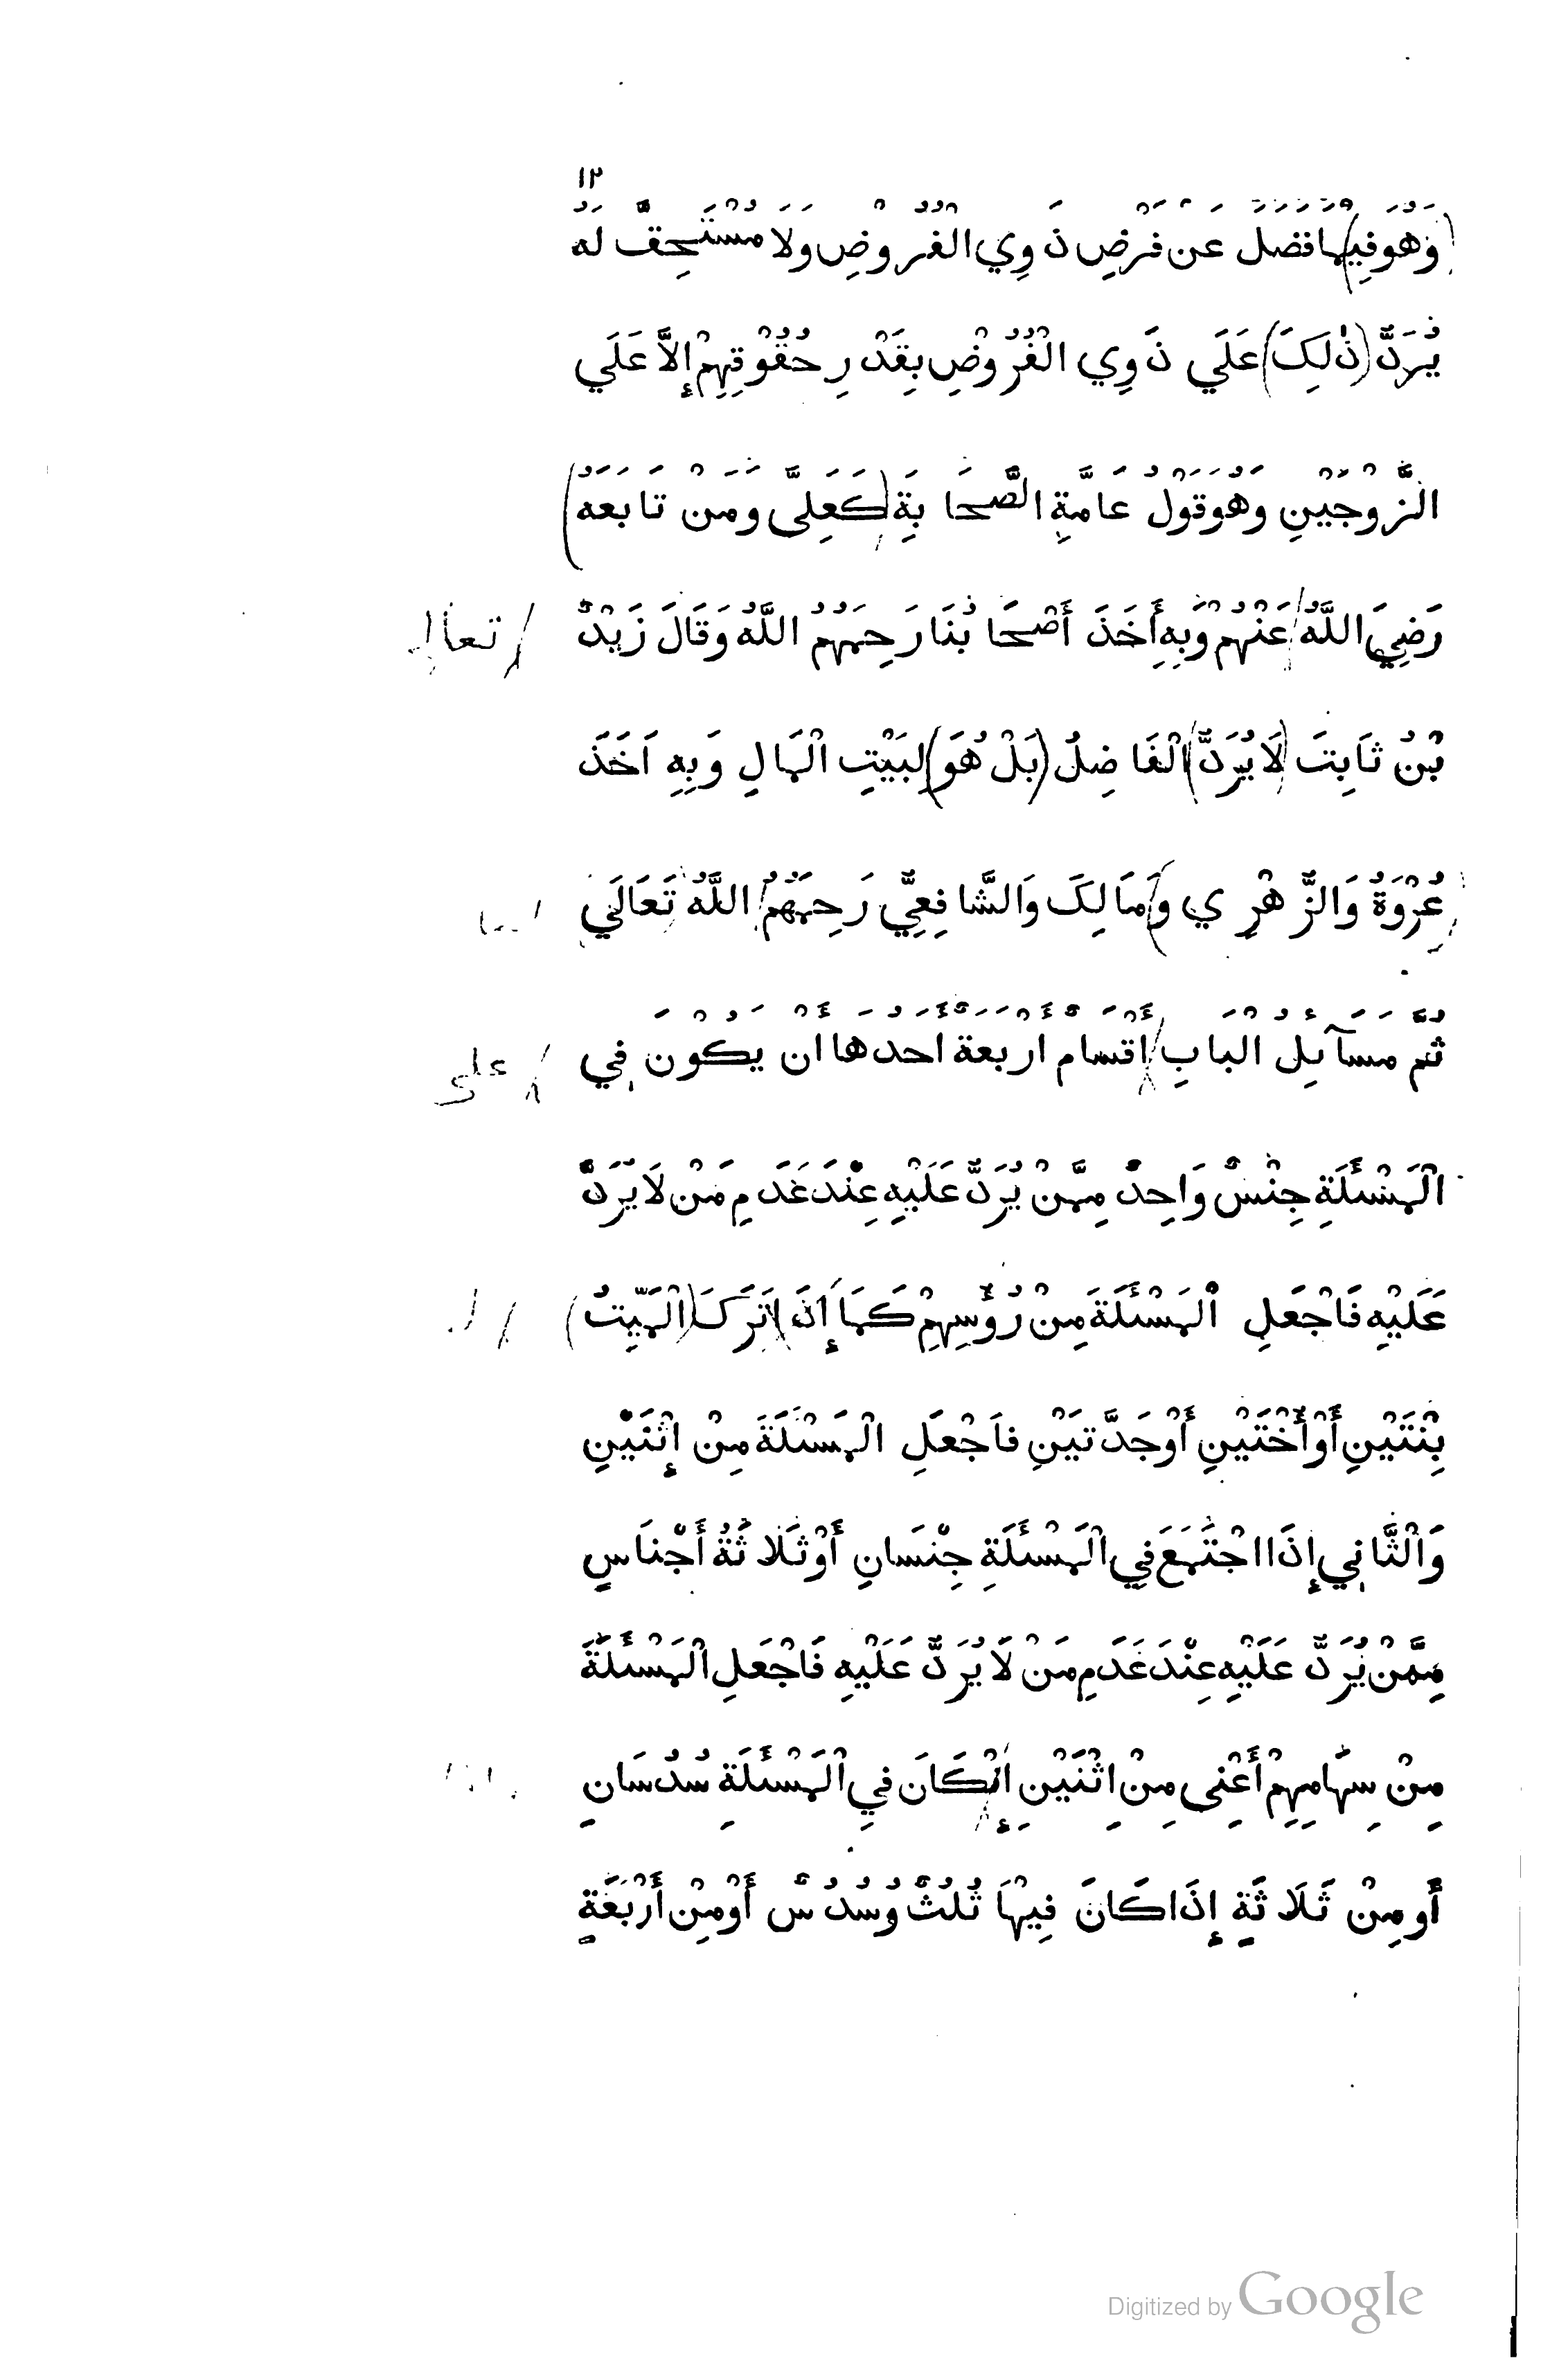 ١٢
(وَهُوَ فِيهَا) فَضَلَ عَنْ فَرْضِ ذَوِي الْفُرُوْضِ وَلَا مُسْتَحِقَّ لَهُ
يُرَدُّ (ذٰلِكَ) عَلَي ذَوِي الْفُرُوْضِ بِقَدْرِ حُقُوْقِهِمْ إِلاَّ عَلَي
الزَّوْجَيْنِ وَهُوَ قَوْلُ عَامَّةِ الصَّحَابَةِ (كَعَلِىٍّ وَمَنْ تَابَعَهُ)
رَضِيَ اللَّهُ عَنْهُمْ وَبِهِ أَخَذَ أَصْحَابُنَا رَحِمَهُمُ اللَّهُ وَقَالَ زَيْدُ
تعالى
بْنُ ثَابِتَ (لَا يُرَدُّ) الْفَاضِلُ (بَلْ هُوَ) لِبَيْتِ الْمَالِ وَبِهِ اَخَذَ
(عُرْوَةُ وَالزُّهْرِي وَ) مَالِكَ وَالشَّافِعِيُّ رَحِمَهُمُ اللَّهُ تَعَالَي
ثُمَّ مَسَآئِلُ الْبَابِ أَقْسَامٌ أَرْبَعَةٌ أَحَدُهَا أَنْ يَكُوْنَ فِي
على
الْمَسْئَلَةِ جِنْسٌ وَاحِدٌ مِمَّنْ يُرَدُّ عَلَيْهِ عِنْدَ عَدَمِ مَنْ لَا يُرَدُّ
عَلَيْهِ فَاجْعَلِ الْمَسْئَلَةَ مِنْ رُؤُسِهِمْ كَمَا إِذَا تَرَكَ (الْمَيِّتُ)
بِنْتَيْنِ أَوْ أُخْتَيْنِ أَوْ جَدَّتَيْنِ فَاجْعَلِ الْمَسْئَلَةَ مِنْ إِثْنَيْنِ
وَالْثَّانِي إِذَا اجْتَمَعَ فِي الْمَسْئَلَةِ جِنْسَانِ أَوْ ثَلَاثَةُ أَجْنَاسٍ
مِمَّنْ يُرَدُّ عَلَيْهِ عِنْدَ عَدَمِ مَنْ لَا يُرَدُّ عَلَيْهِ فَاجْعَلِ الْمَسْئَلَةَ
مِنْ سِهَامِهِمْ أَعْنِى مِنْ اِثْنَيْنِ إِنْكَانَ فِي الْمَسْئَلَةِ سُدُسَانِ
أَو مِنْ ثَلَاثَةٍ إِذَا كَانَ فِيْهَا ثُلُثٌ وَسُدُسٌ أَوْ مِنْ أَرْبَعَةٍ
Digitized by Google